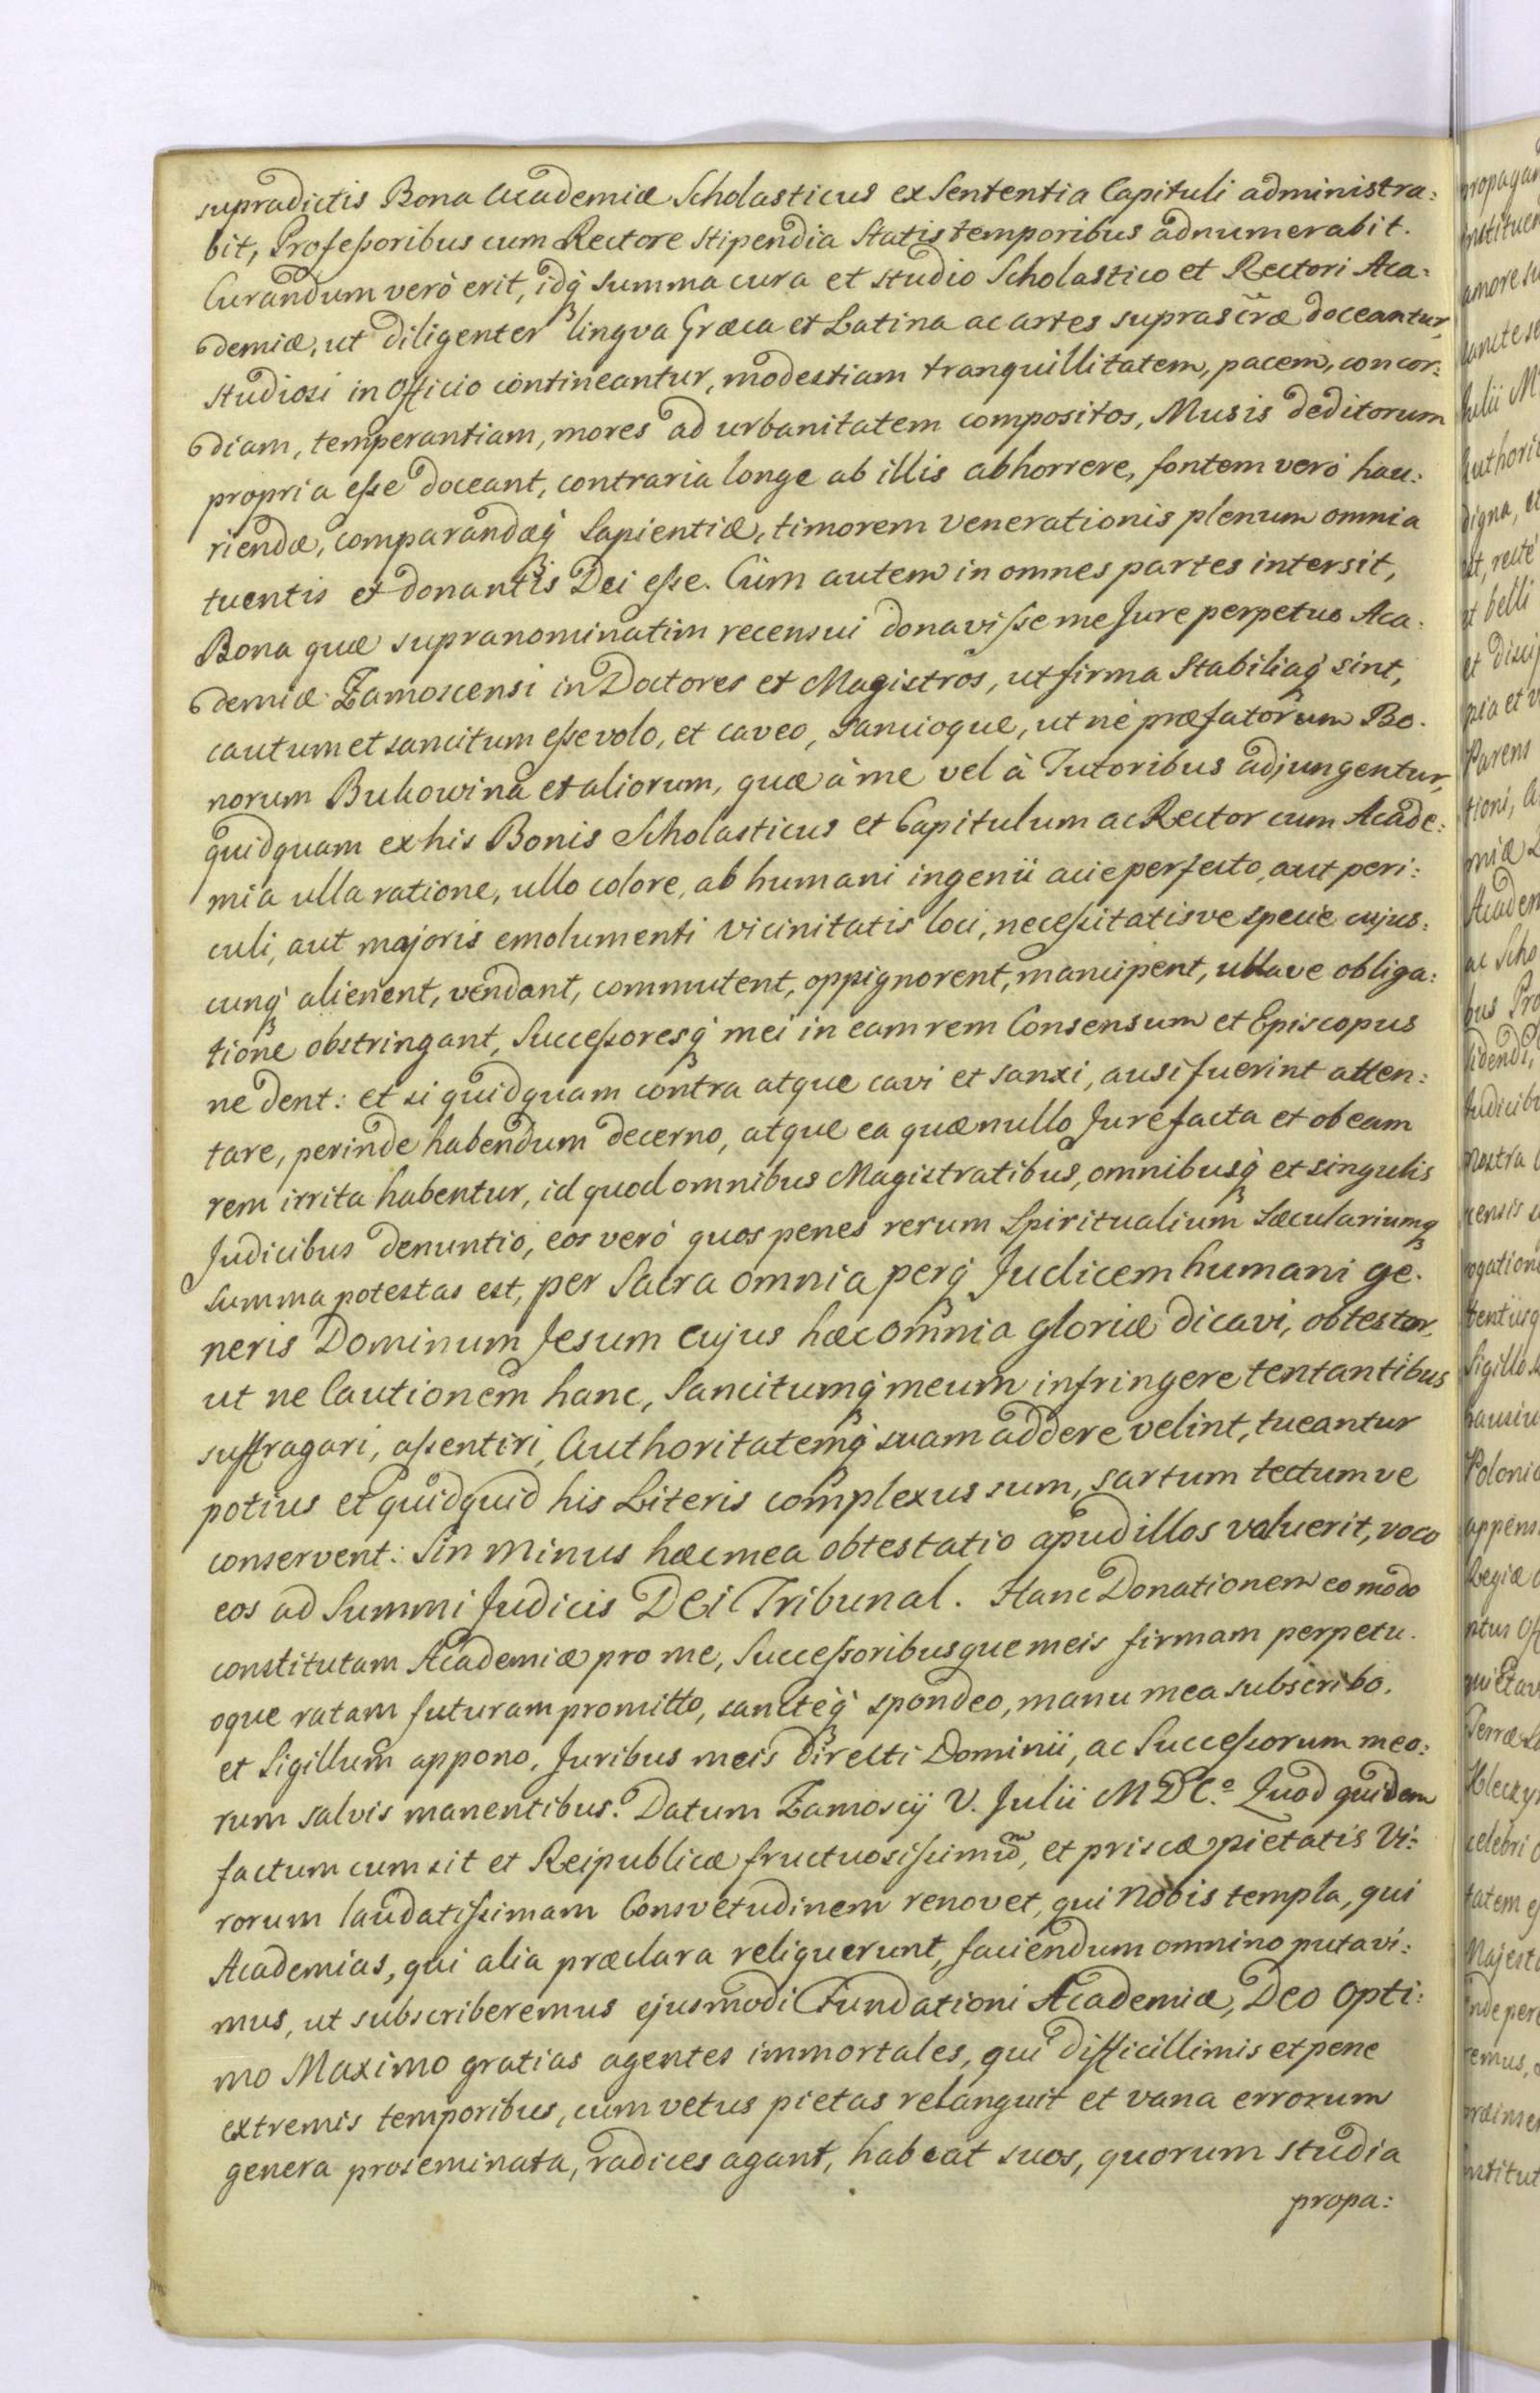 supradictis Bona Academiæ Scholasticus ex Sententia Capituli administra:
bit, Professoribus cum Rectore stipendia Statis temporibus adnumerabit.
Curandum verò erit, idq́ summa cura et studio Scholastico et Rectori Aca:
demiæ, ut diligenter lingva Græca et Latina ac artes suprascr̃æ doceantur,
studiosi in Officio contineantur, modestiam tranquillitatem, pacem, concor:
diam, temperantiam, mores ad urbanitatem compositos, Musis deditorum
propria esse doceant, contraria longe ab illis abhorrere, fontem verò hau:
riendæ, comparandæq́ Sapientiæ, timorem venerationis plenum omnia
tuentis et donantis Dei esse. Cùm autem in omnes partes intersit,
Bona quæ supra nominatim recensui donavisse me Jure perpetuo Aca:
demiæ Zamoscensi in Doctores et Magistros, ut firma Stabiliaq́ sint,
cautum et sancitum esse volo, et caveo, sancioque, ut nè præfatorum Bo.
norum Bukowina et aliorum, quæ à me vel à Tutoribus adjungentur,
quidquam ex his Bonis Scholasticus et Capitulum ac Rector cum Acade:
mia ulla ratione, ullo colore, ab humani ingenii acie perfecto, aut peri:
culi, aut majoris emolumenti vicinitatis loci, necessitatisve specie cujus:
cunq́ alienent, vendant, commutent, oppignorent, mancipent, ullave obliga:
tione obstringant, Successoresq́ mei in eam rem Consensum et Episcopus
ne dent: et si quidquam contra atque cavi et sanxi, ausi fuerint atten:
tare, perinde habendum decerno, atque ea quæ nullo Jure facta et ob eam
rem irrita habentur, id quod omnibus Magistratibus, omnibusq́ et singulis
Judicibus denuntio, eos verò quos penes rerum Spiritualium Sæculariumq
summa potestas est, per Sacra omnia perq́ Judicem humani ge.
neris Dominum Jesum cujus hæc omnia gloriæ dicavi, obtestor,
ut ne Cautionem hanc, Sancitumq́ meum infringere tentantibus
suffragari, assentiri, Authoritatemq́ suam addere velint, tueantur
potius et quidquid his Literis complexus sum, sartum tectumve
conservent: Sin minus hæc mea obtestatio apud illos valuerit, voco
eos ad Summi Judicis DEI Tribunal. Hanc Donationem eo modo
constitutam Academiæ pro me, Successoribusque meis firmam perpetu.
oque ratam futuram promitto, sanctèq́ spondeo, manu mea subscribo.
et Sigillum appono, Juribus meis directi Dominii, ac Successorum meo:
rum salvis manentibus. Datum Zamoscij V. Julii MDC.º Quod quidem
factum cum sit et Reipublicæ fructuosissimũ, et priscæ pietatis Vi:
rorum laudatissimam Consvetudinem renovet, qui nobis templa, qui
Academias, qui alia præclara reliquerunt, faciendum omnino putavi:
mus, ut subscriberemus ejusmodi Fundationi Academiæ, Deo Opti:
mo Maximo gratias agentes immortales, qui difficillimis et pene
extremis temporibus, cum vetus pietas relanguit et vana errorum
genera proseminata, radices agant, habeat suos, quorum studia
propa: